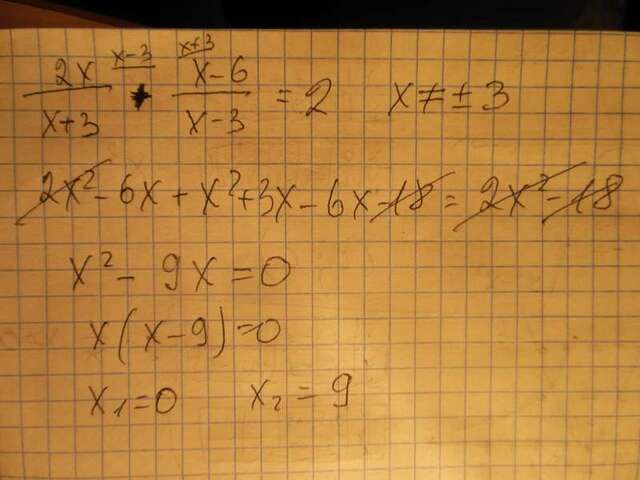 2x/(x+3) ^(x-3) + (x-6)/(x-3) ^(x+3) = 2 x ≠ ± 3
2x² - 6x + x² + 3x - 6x - 18 = 2x² - 18
x² - 9x = 0
x(x-9)=0
x₁=0 x₂=9